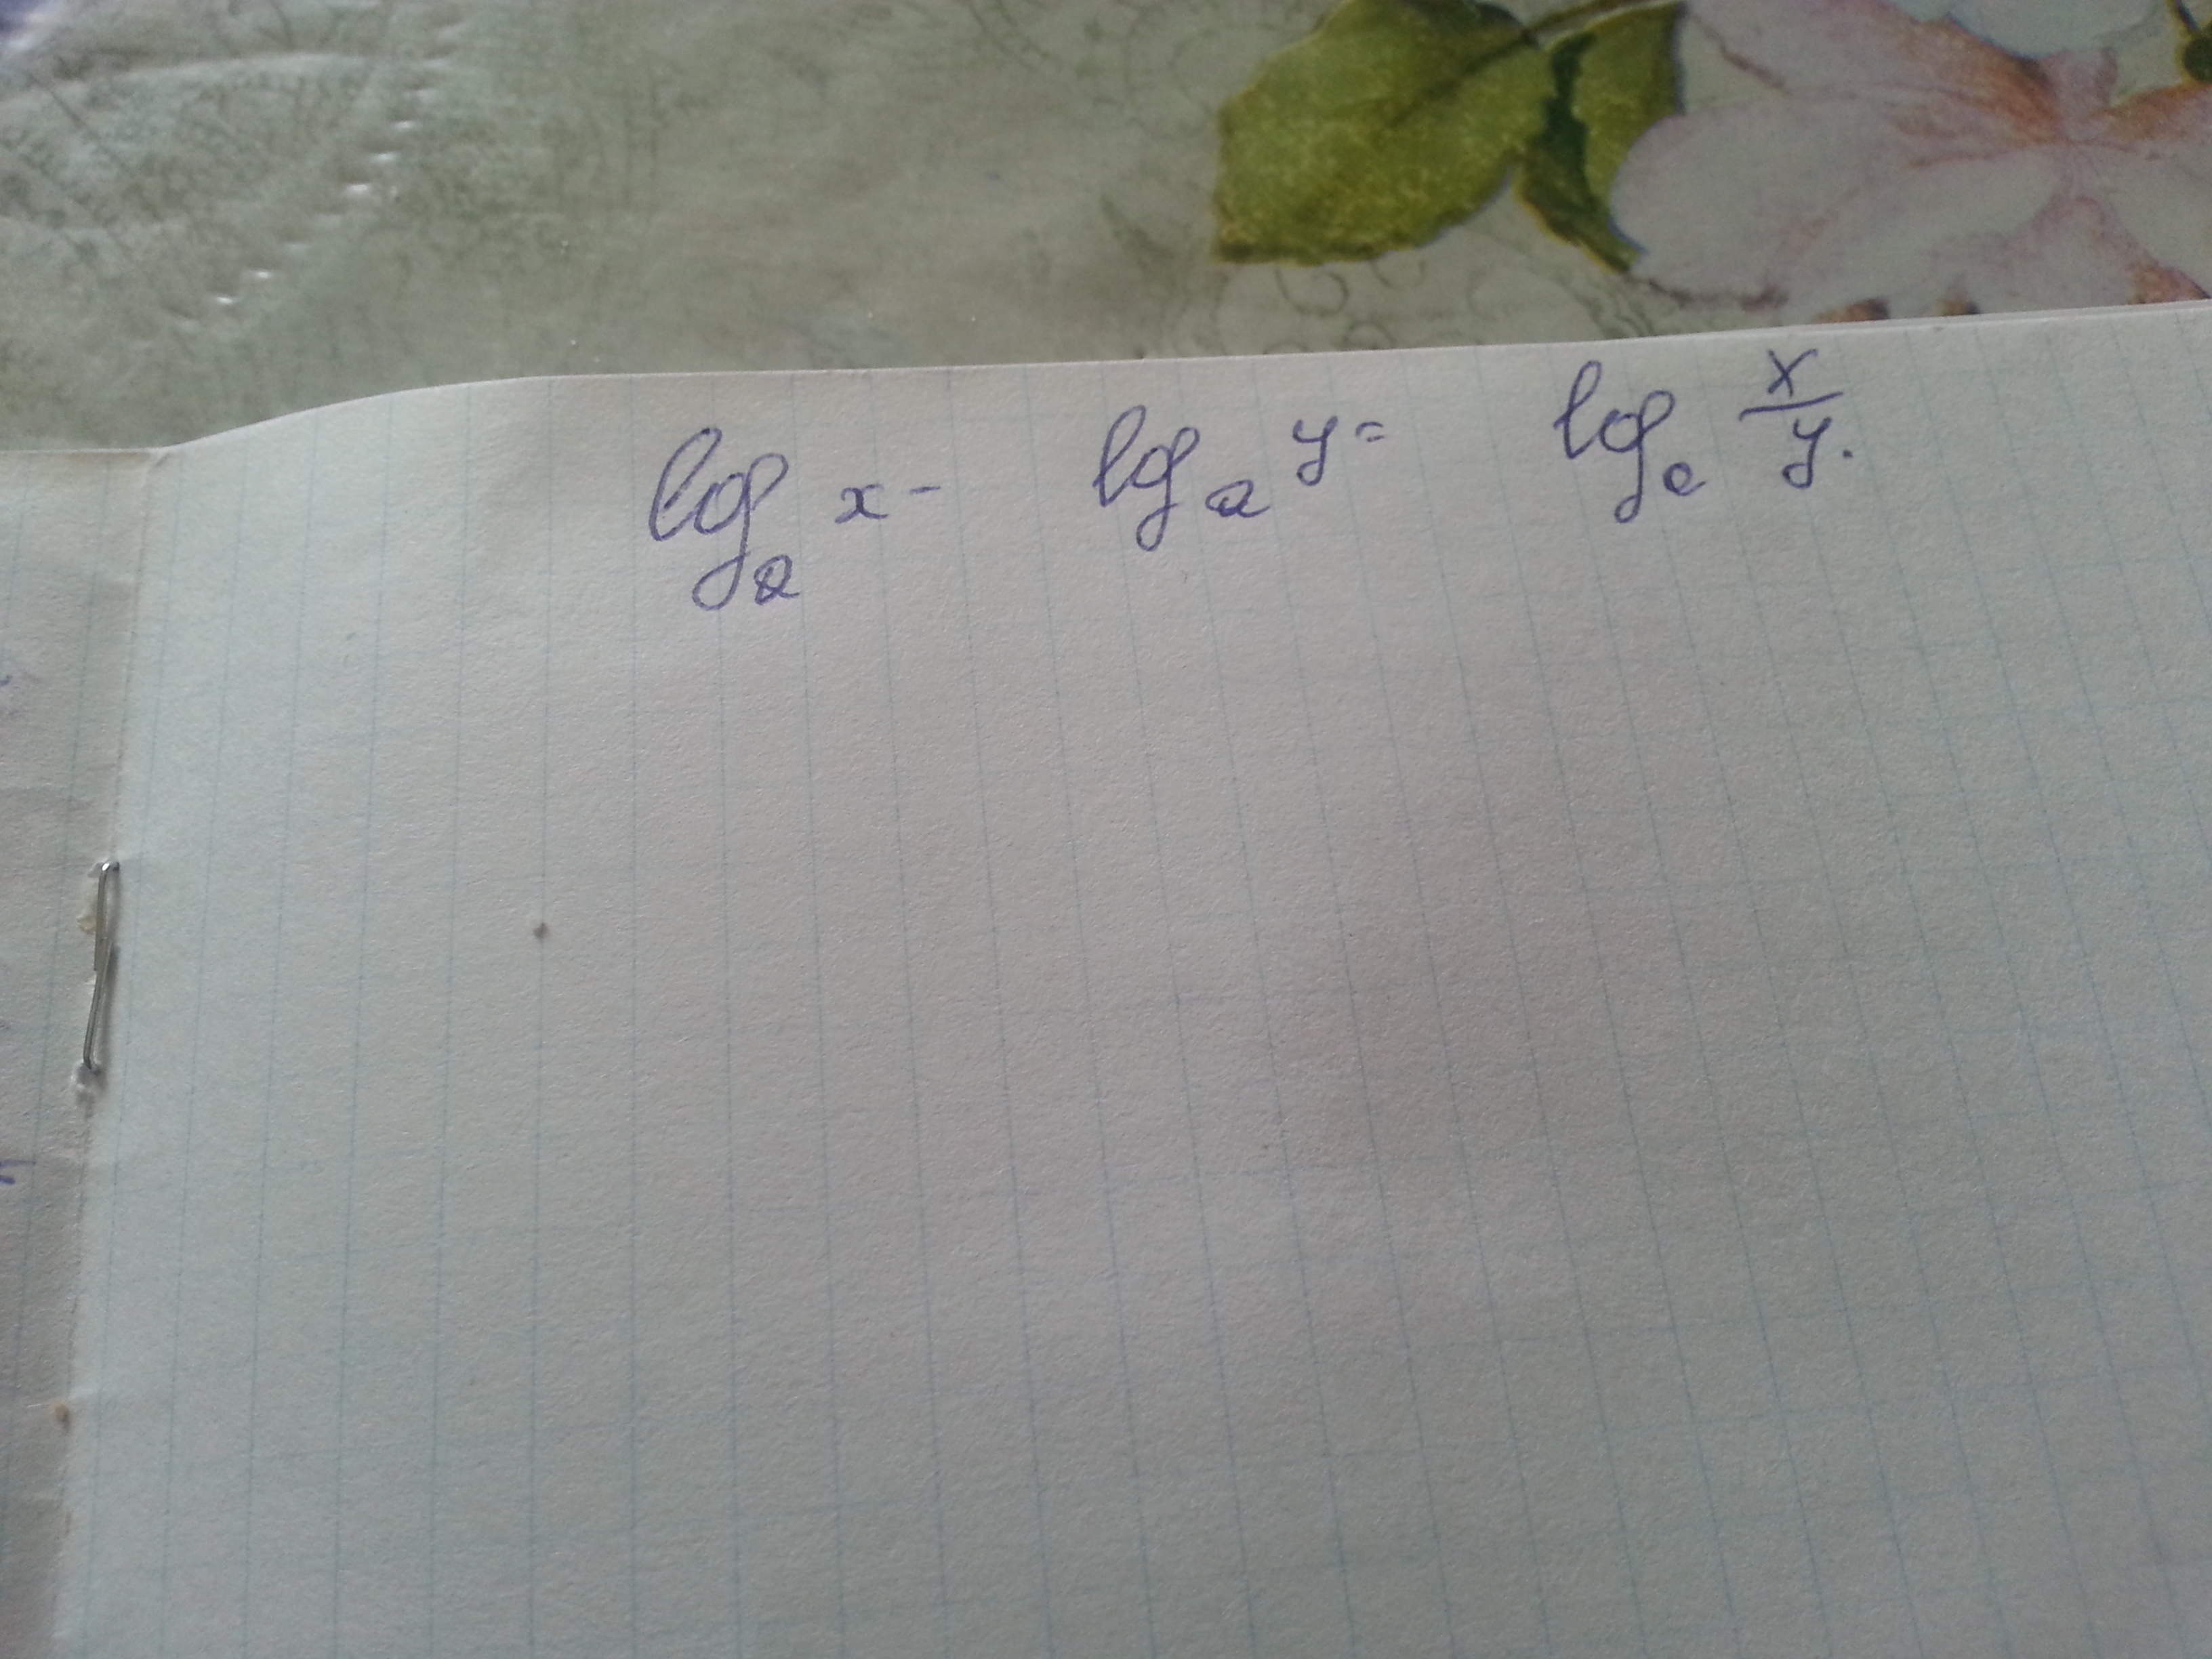 log_a x - log_a y = log_a x/y.